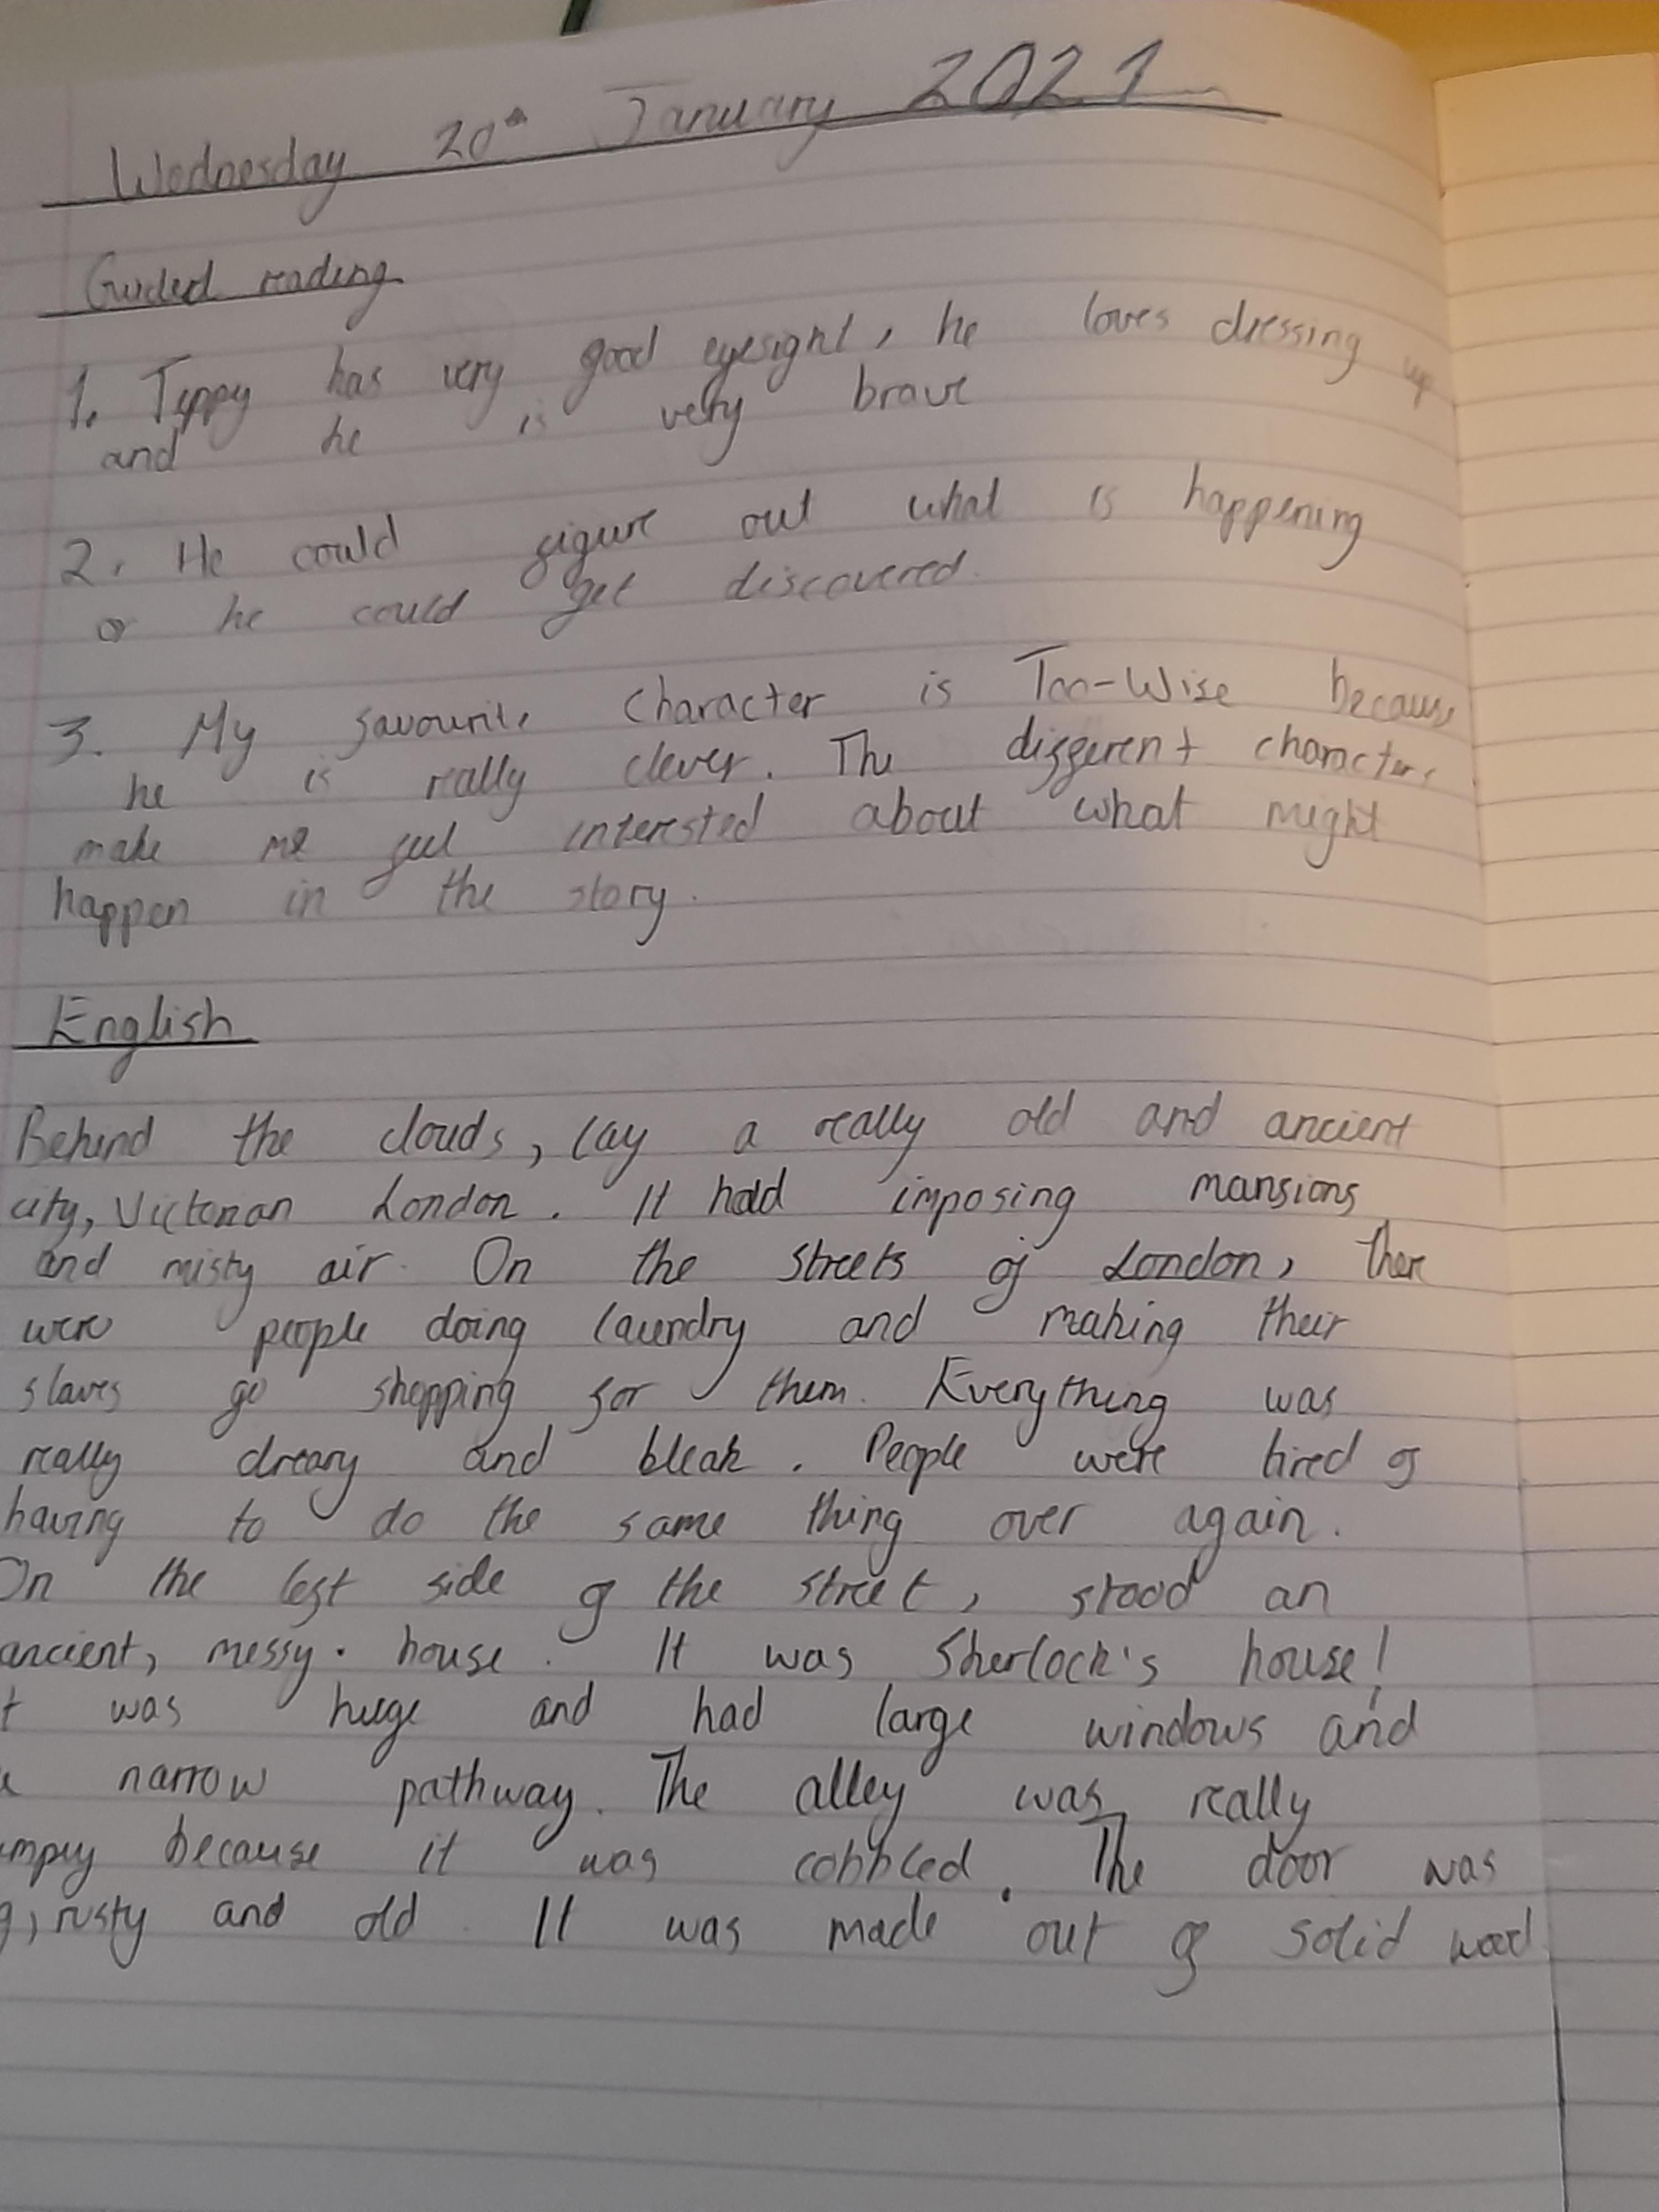 Wednesday 20th January 2021
Guided reading
1. Tippy has very good eyesight, he loves dressing up
and he is very brave
2. He could figure out what is happening
or he could get discovered.
3. My favourite character is Too-Wise because
he is really clever. The different characters
make me feel interested about what might
happen in the story.
English
Behind the clouds, lay a really old and ancient
city, Victorian London. It had imposing mansions
and misty air. On the streets of London, there
were people doing laundry and making their
slaves go shopping for them. Everything was
really dreary and bleak. People were tired of
having to do the same thing over again.
On the left side of the street, stood an
ancient, messy. house. It was Sherlock's house!
t was huge and had large windows and
narrow pathway. The alley was really
because it was cobbled. The door was
, rusty and old. It was made out of solid wood